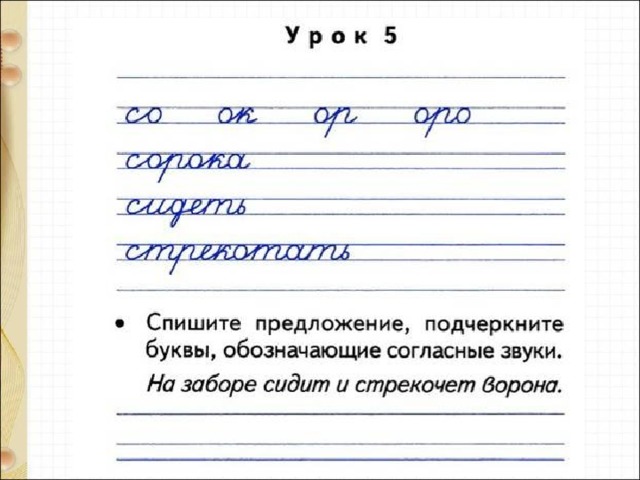 Урок 5
со ок ор оро
сорока
сидеть
стрекотать
• Спишите предложение, подчеркните
буквы, обозначающие согласные звуки.
На заборе сидит и стрекочет ворона.